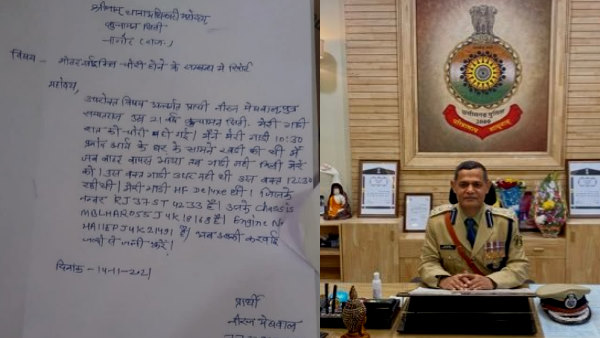 श्रीमान् थानाधिकारी महोदय,
कुचामन सिटी
नागौर (राज.)
विषय:- मोटर साईकिल चोरी होने के सम्बन्ध में रिपोर्ट
महोदय,
उपरोक्त विषय अन्तर्गत प्रार्थी नीरज मेघवाल पुत्र
उम्र 21 वर्ष कुचामन सिटी. मेरी गाड़ी
रात को चोरी हो गई। मैंने मेरी गाड़ी 10:30
घर के सामने खड़ी की थी मैं
जब बाहर वापस आया तब गाड़ी नहीं मिली मेरे
को। उस वक्त गाड़ी उधर नहीं थी उस वक्त 12:30
रही थी। मेरी गाड़ी HF Deluxe थी। जिसके
नम्बर RJ 37 ST 4233 है। उसके Chassis
MBLHAR055J4K18168 है। Engine No
HA11EPJ4K21191 है। अब उसकी करवाई
जल्दी से जल्दी करें।
दिनांक - 14-11-2021
प्रार्थी
नीरज मेघवाल
छत्तीसगढ़ पुलिस
2000
परित्राणाय साधुनाम्